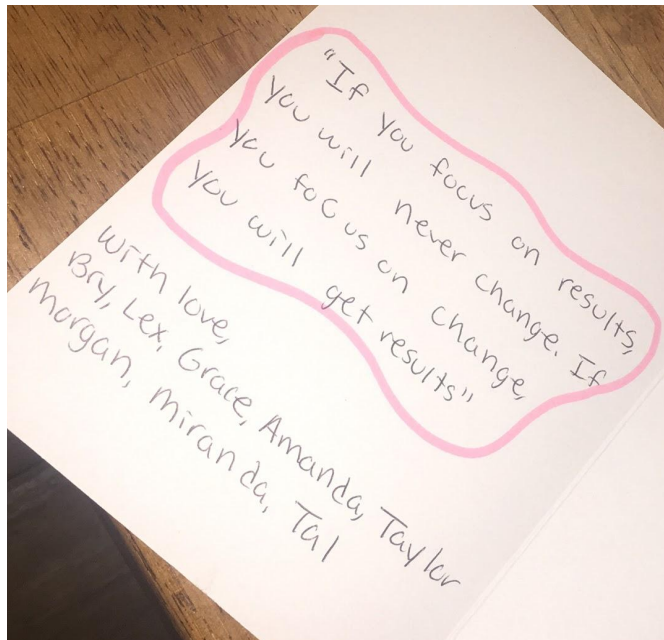 "If you focus on results,
you will never change. If
you focus on change,
you will get results"
With love,
Bry, Lex, Grace, Amanda, Taylor
Morgan, Miranda, Tal